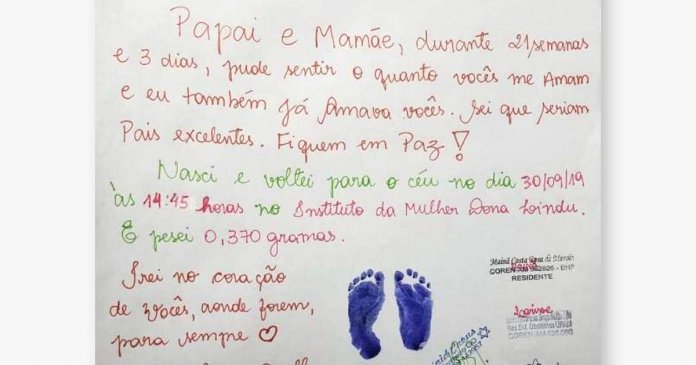 Papai e Mamãe, durante 21 semanas
e 3 dias, pude sentir o quanto vocês me Amam
e eu também Já Amava vocês. Sei que seriam
Pais excelentes. Fiquem em Paz!
Nasci e voltei para o céu no dia 30/09/19
às 14:45 horas no Instituto da Mulher Dona Lindu.
E pesei 0,370 gramas.
Irei no coração
de vocês, aonde forem,
para sempre ♡
Mainã Costa Rosa de Morais
COREN-AM
RESIDENTE
Larisse